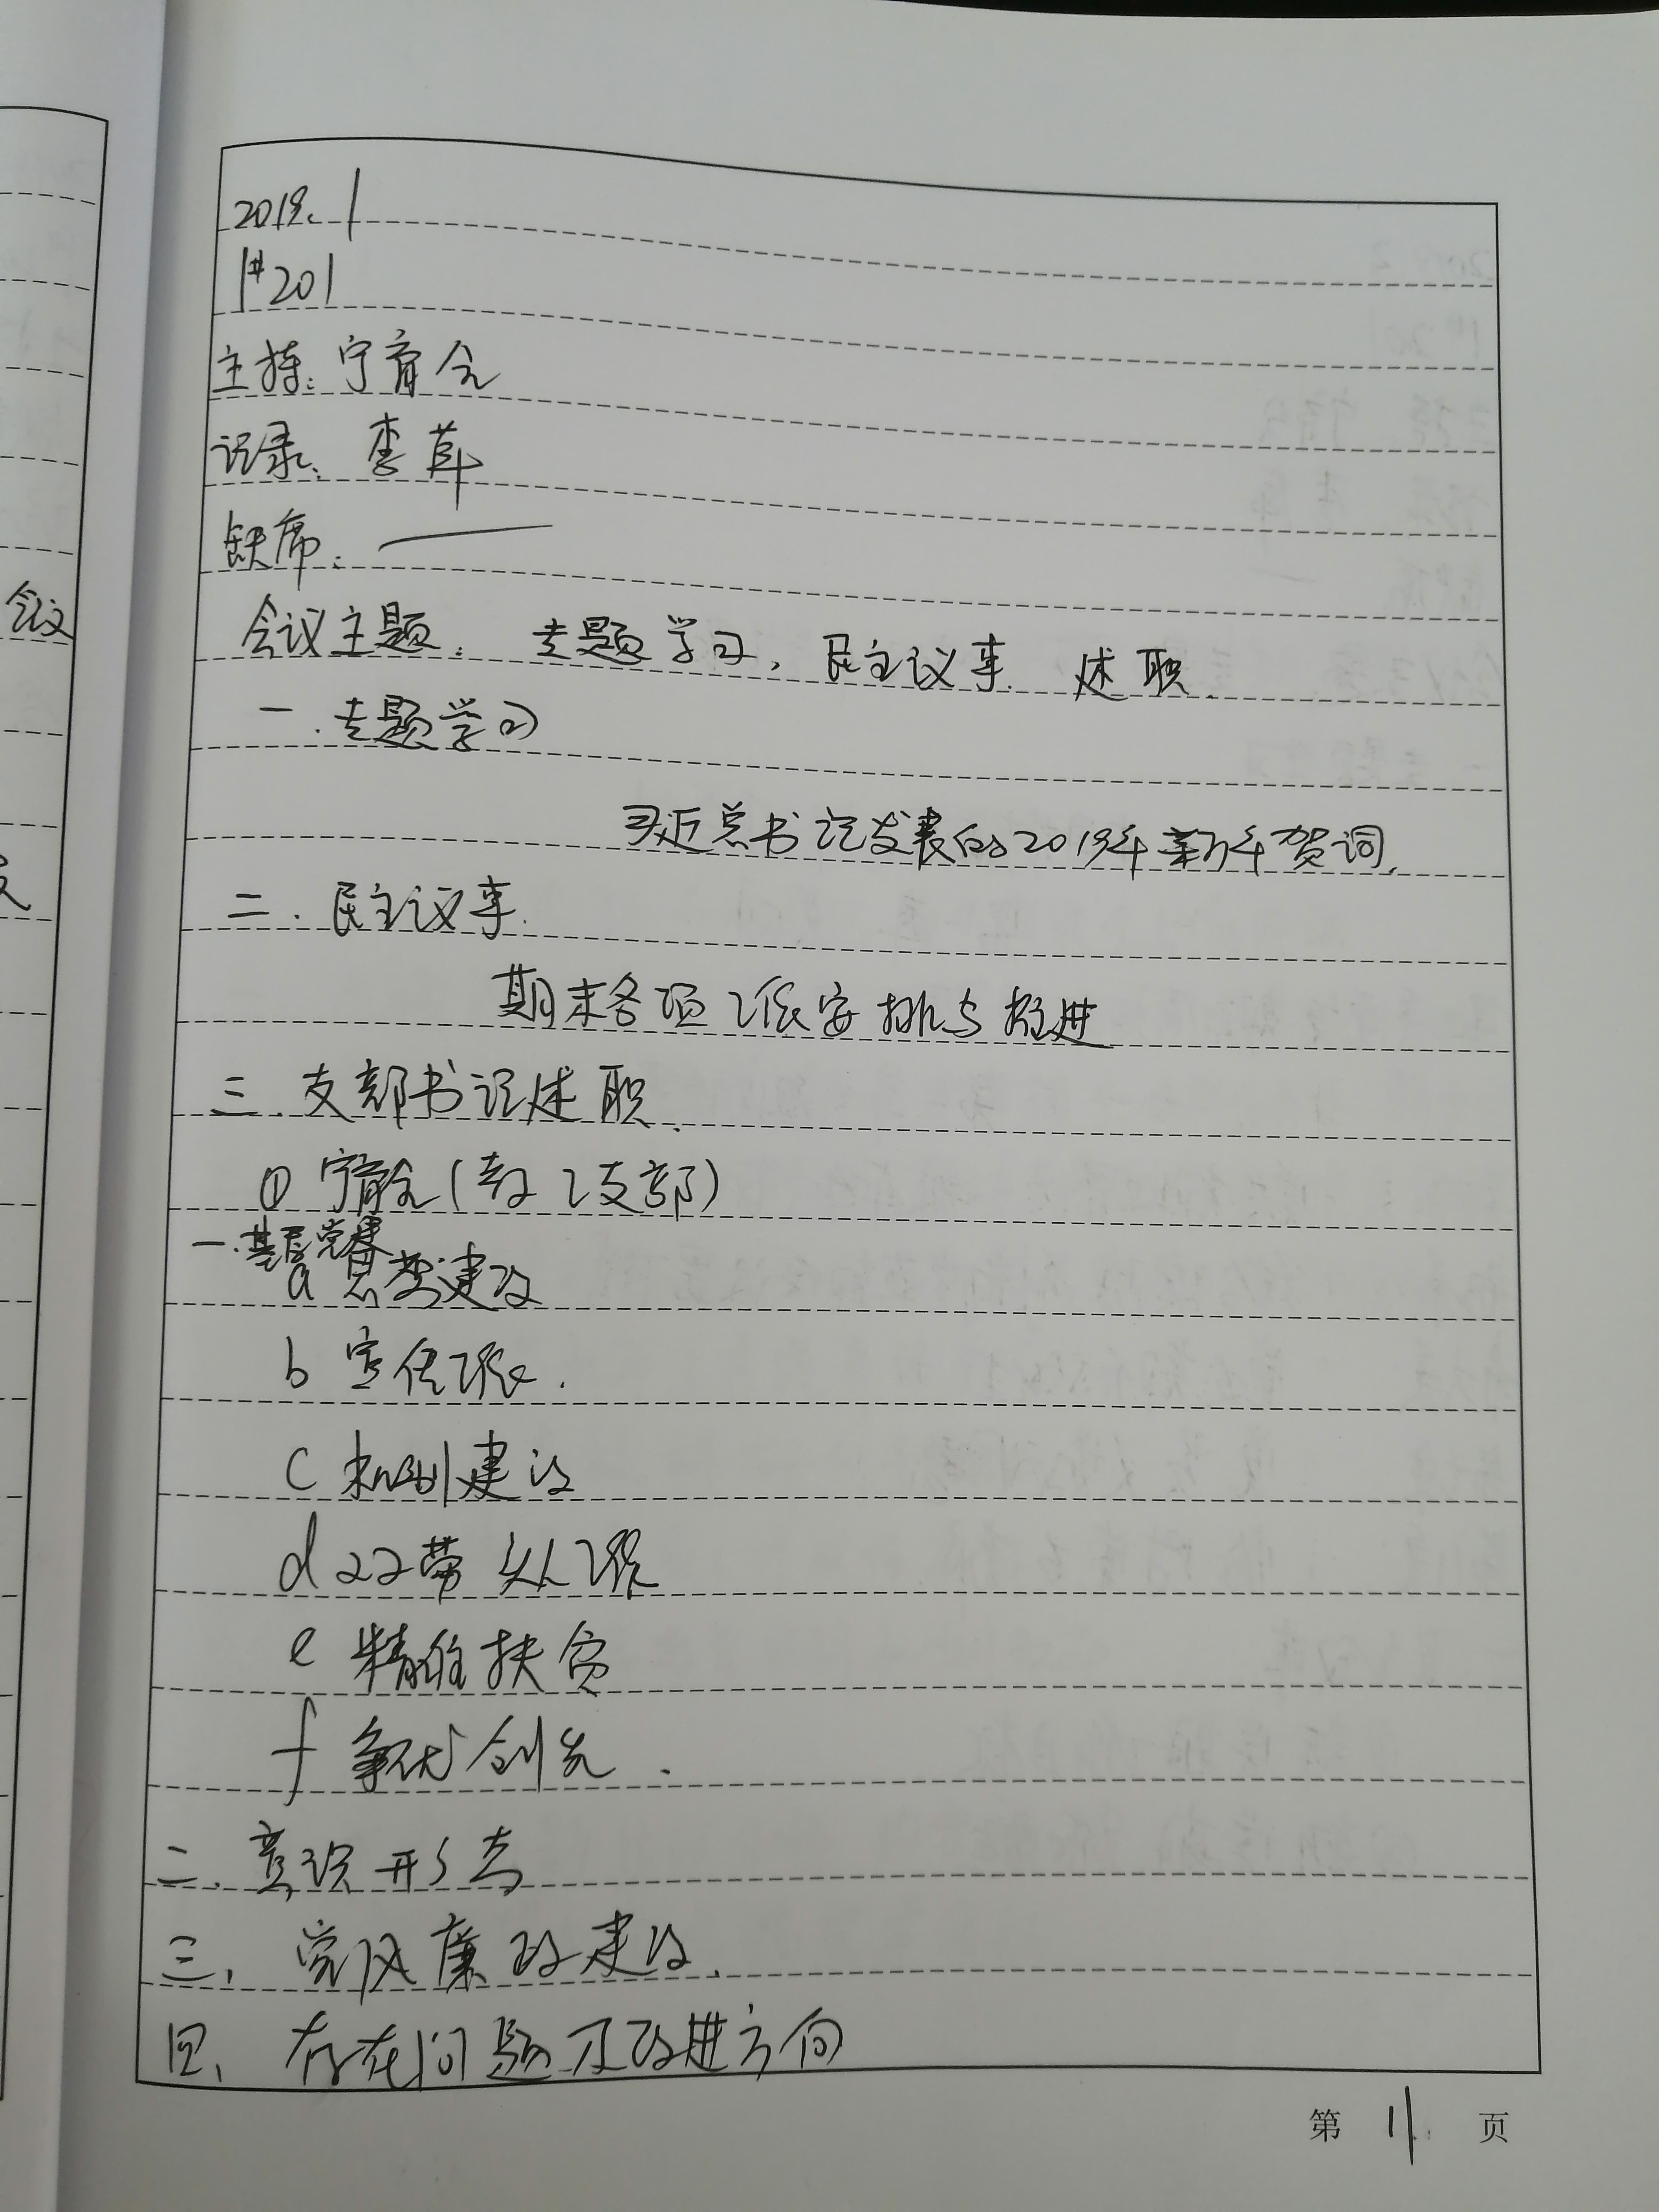 2019.1
1#201
主持:宁育全
记录:李萍
缺席:——
会议主题:专题学习,民主议事 述职.
一.专题学习
习近总书记发表的2019年新年贺词.
二.民主议事.
期末各项工作安排与推进
三.支部书记述职.
① 宁育全(教工支部)
一.基层党建
a 思想建设
b 宣传工作.
c 机制建设
d 双带头人工作
e 精准扶贫
f 争优创先.
二.意识形态
三.党风廉政建设.
四、存在问题及改进方向
第 11 页
会议